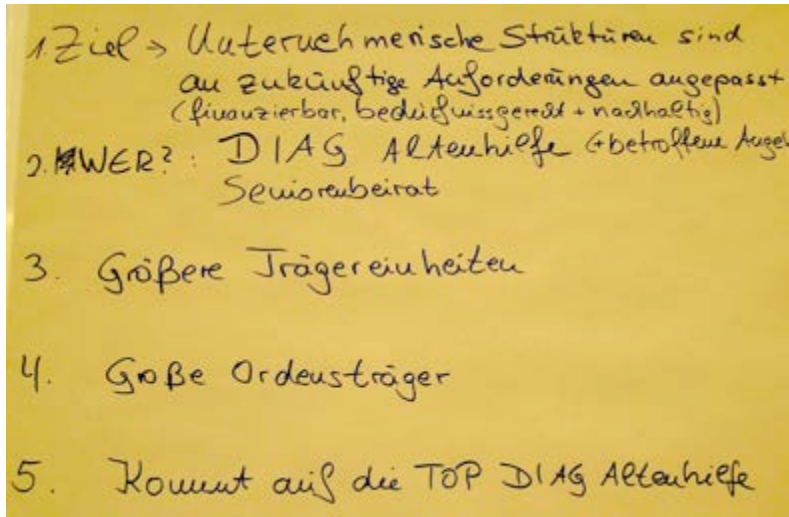 1. Ziel → Unternehmerische Strukturen sind
an zukünftige Anforderungen angepasst
(finanzierbar, bedürfnissgerecht + nachhaltig)
2. WER?: DIAG Altenhilfe (+betroffene Angeh
Seniorenbeirat
3. Größere Trägereinheiten
4. Große Ordensträger
5. Kommt auf die TOP DIAG Altenhilfe